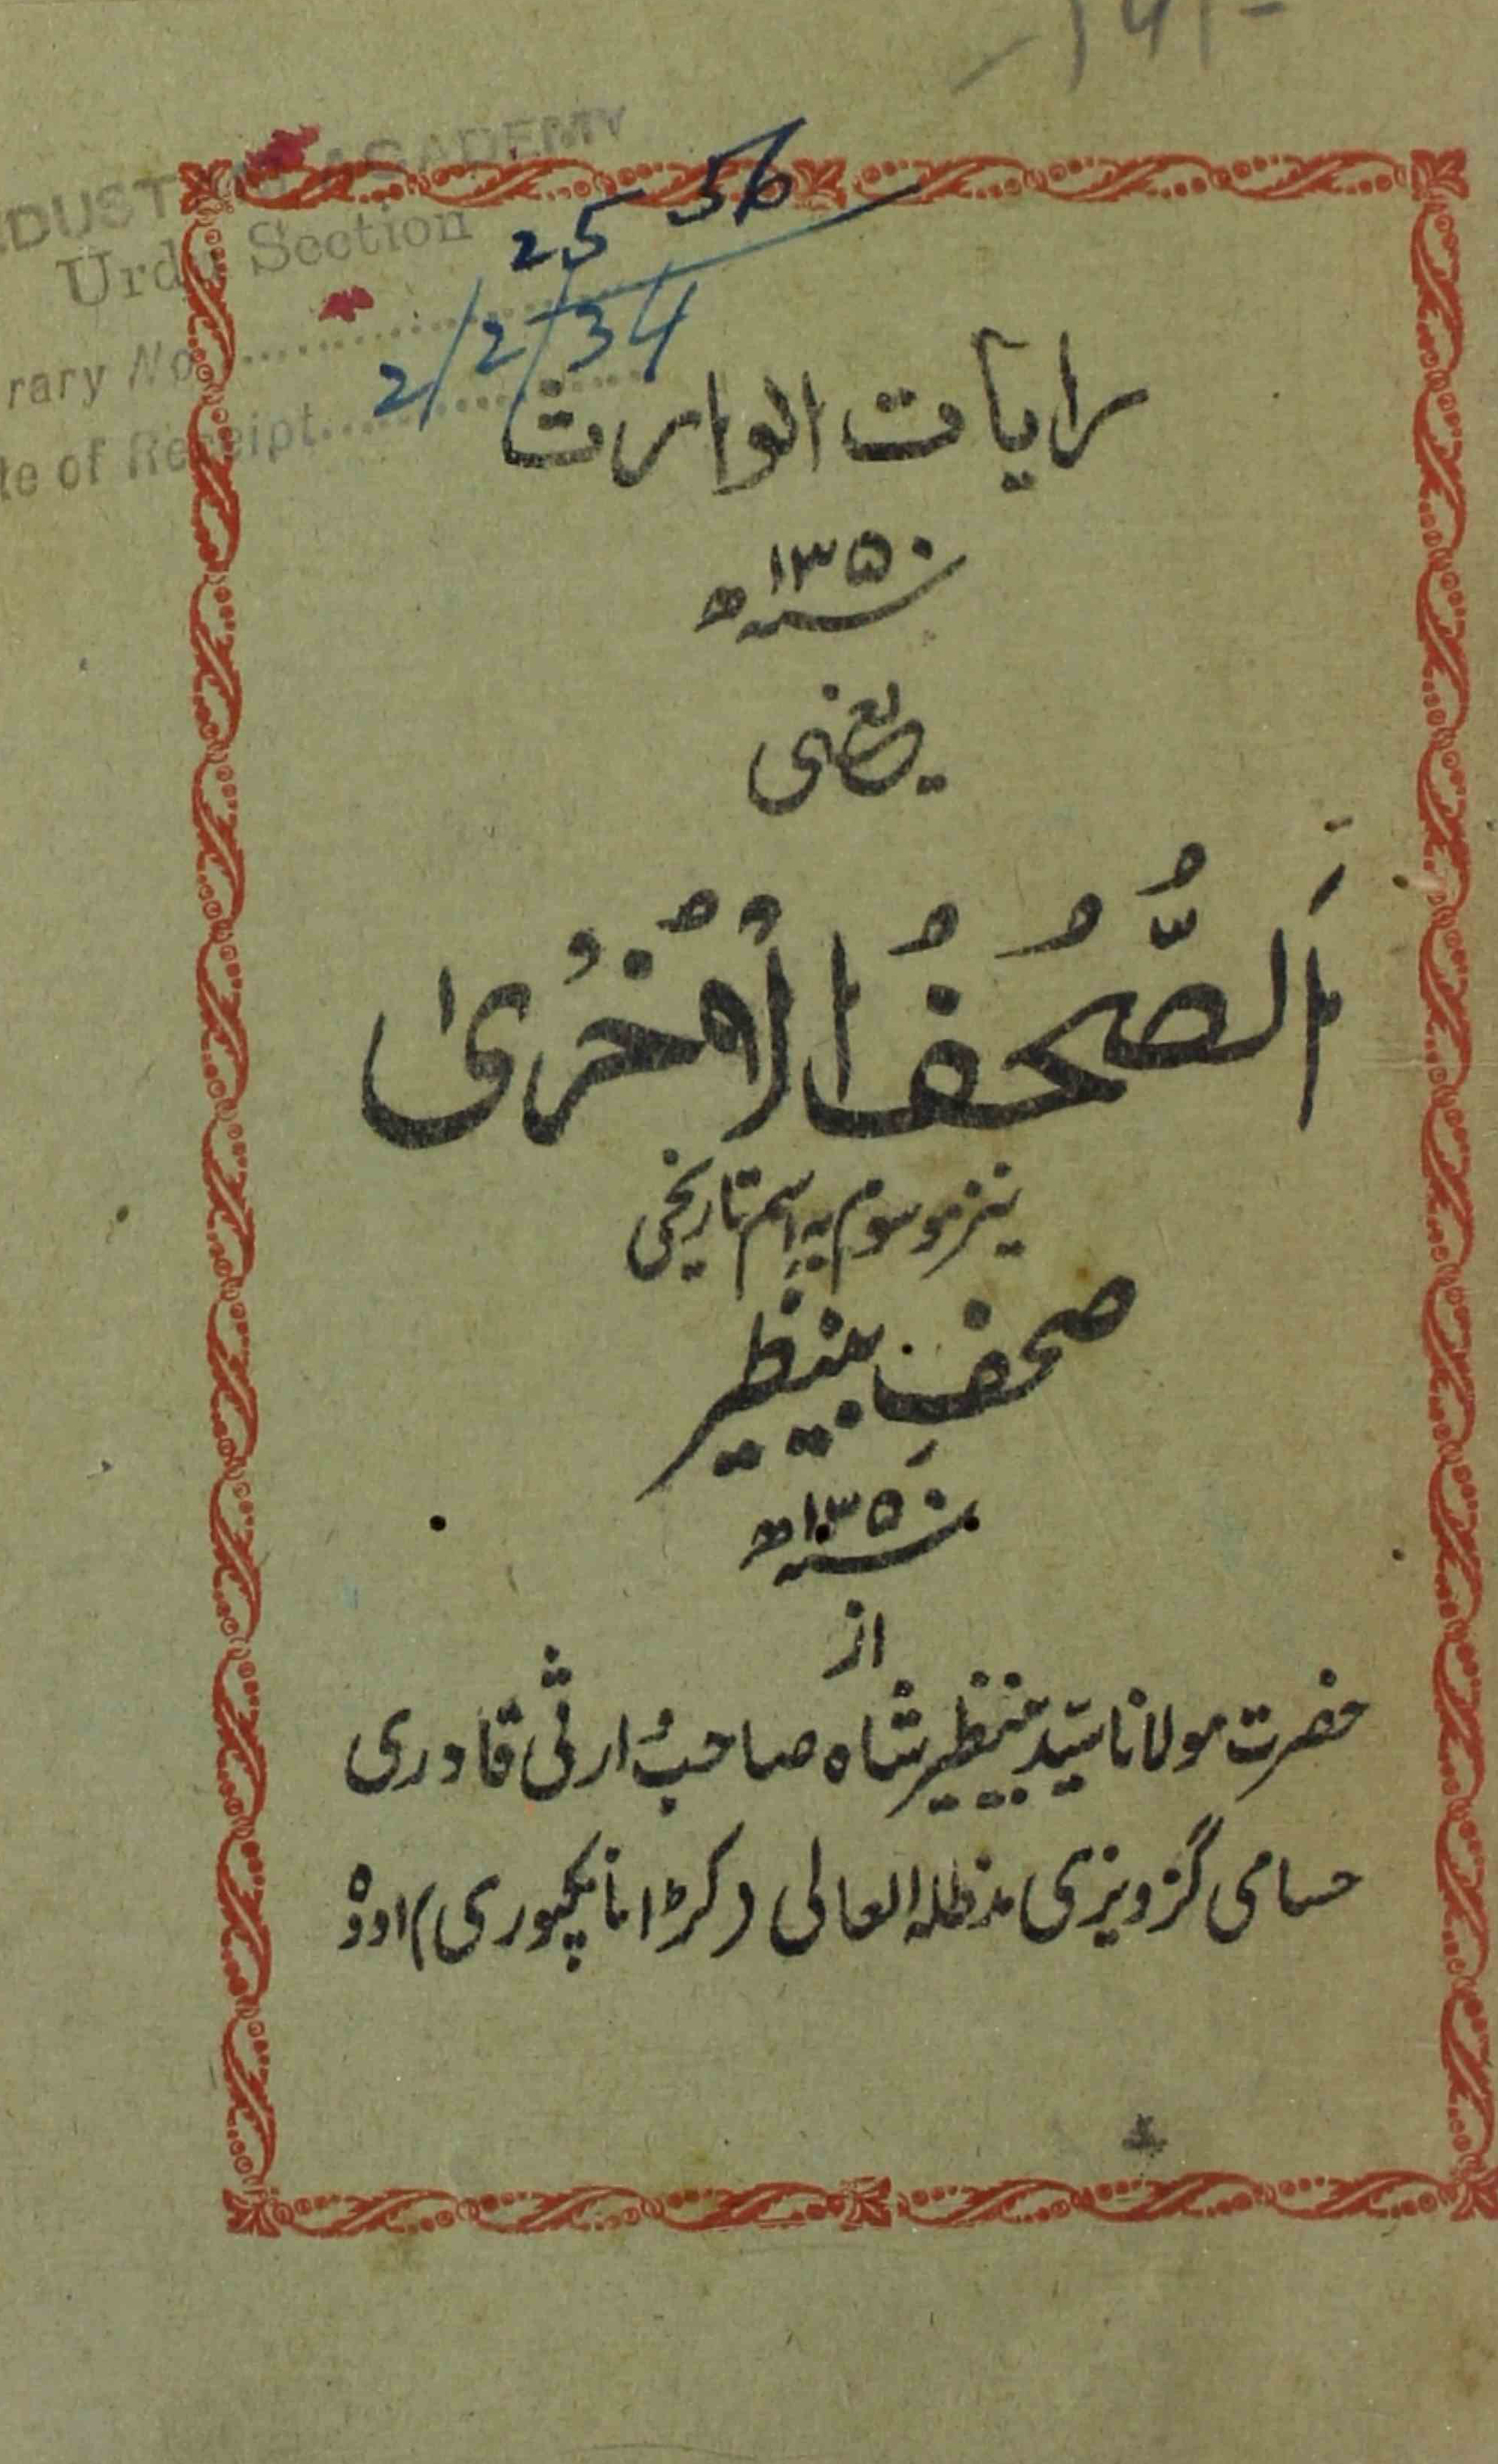 HINDUSTANI ACADEMY
Urdu Section
rary No. 2556
te of Receipt 2/2/34
رایات الوارث
سنہ ۱۳۵۰ھ
یعنی
اَلصُّحُفُ الْاُخْرٰی
نیز موسوم بہ اسم تاریخی
صحفِ بینظیر
سنہ ۱۳۵۰ھ
از
حضرت مولانا سیّد بینظیر شاہ صاحب وارثی قادری
حسامی گزویزی مدظلہ العالی (کڑا مانکپوری) اودھ